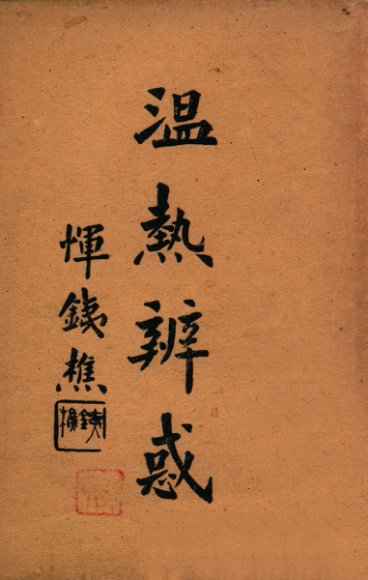 温熱辨惑
惲鐵樵
鐵樵